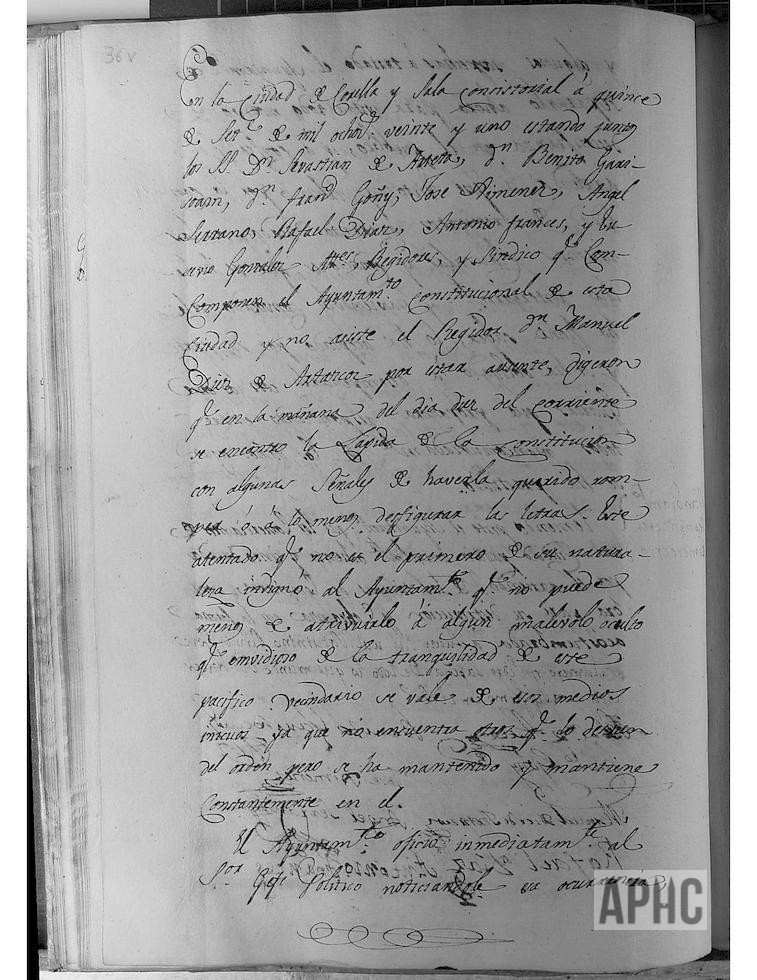 36 v
En la Ciudad de Corella y Sala consistorial à quince
de Set.e de mil ochos. veinte y uno estando juntos
los SS. Dn. Sevastian de Arteta, dn. Benito Gari-
soain, dn. Fran.co Goñy, Jose Ximenez, Angel
Serrano, Rafael Diaz, Antonio frances, y Eu-
sevio Gonzalez Attes, Regidores, y Sindico q.e Com-
Componen el Ayuntam.to Constitucional de esta
Ciudad y no asiste el Regidor dn. Manuel
Diez de Artazcoz por estar ausente, digeron
q.e en la mañana del dia diez del corriente
se encontro la Lapida de la Constitucion
con algunas Señales de haverla querido rom-
per ó à lo menos desfigurar las letras. Este
atentado q.e no es el primero de su natura-
leza indignó al Ayuntam.to q.e no puede
menos de atribuirlo à algun malevolo oculto
q.e envidioso de la tranquilidad de este
pacifico vecindario se vale de esos medios
inicuos ya que no encuentra otros q.e lo desvien
del orden pero se ha mantenido y mantiene
Constantemente en el.
El Ayuntam.to oficiò inmediatam.te al
S.or Gefe Politico noticiandole su ocurrencia,
APHC